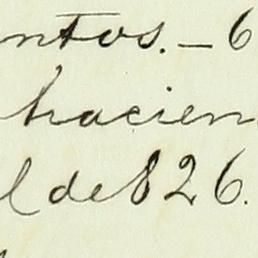 ntos. — 6
hacien
l de 826.